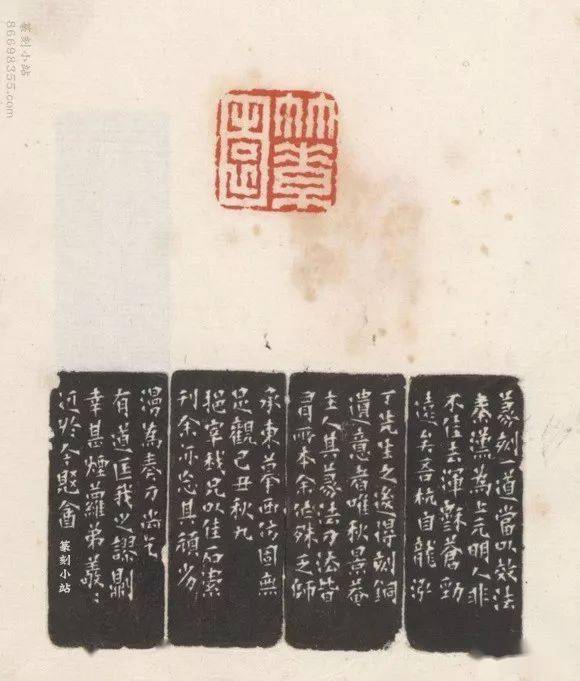 篆刻小站
86698355.com
竹素
篆刻一道當以效法
秦漢為上元明人非
不佳去渾穌蒼勁
遠矣吾杭自龍泓
丁先生之後得刻銅
遺意者唯秋景菴
主人其篆法刀法皆
有所本余殊乏師
承東摹西仿固無
足觀己丑秋九
挹宰我兄以佳石索
刊余亦忘其頑劣
漫為奏刀尚乞
有道匡我之謬則
幸甚煙蘿弟羲
篆刻小站